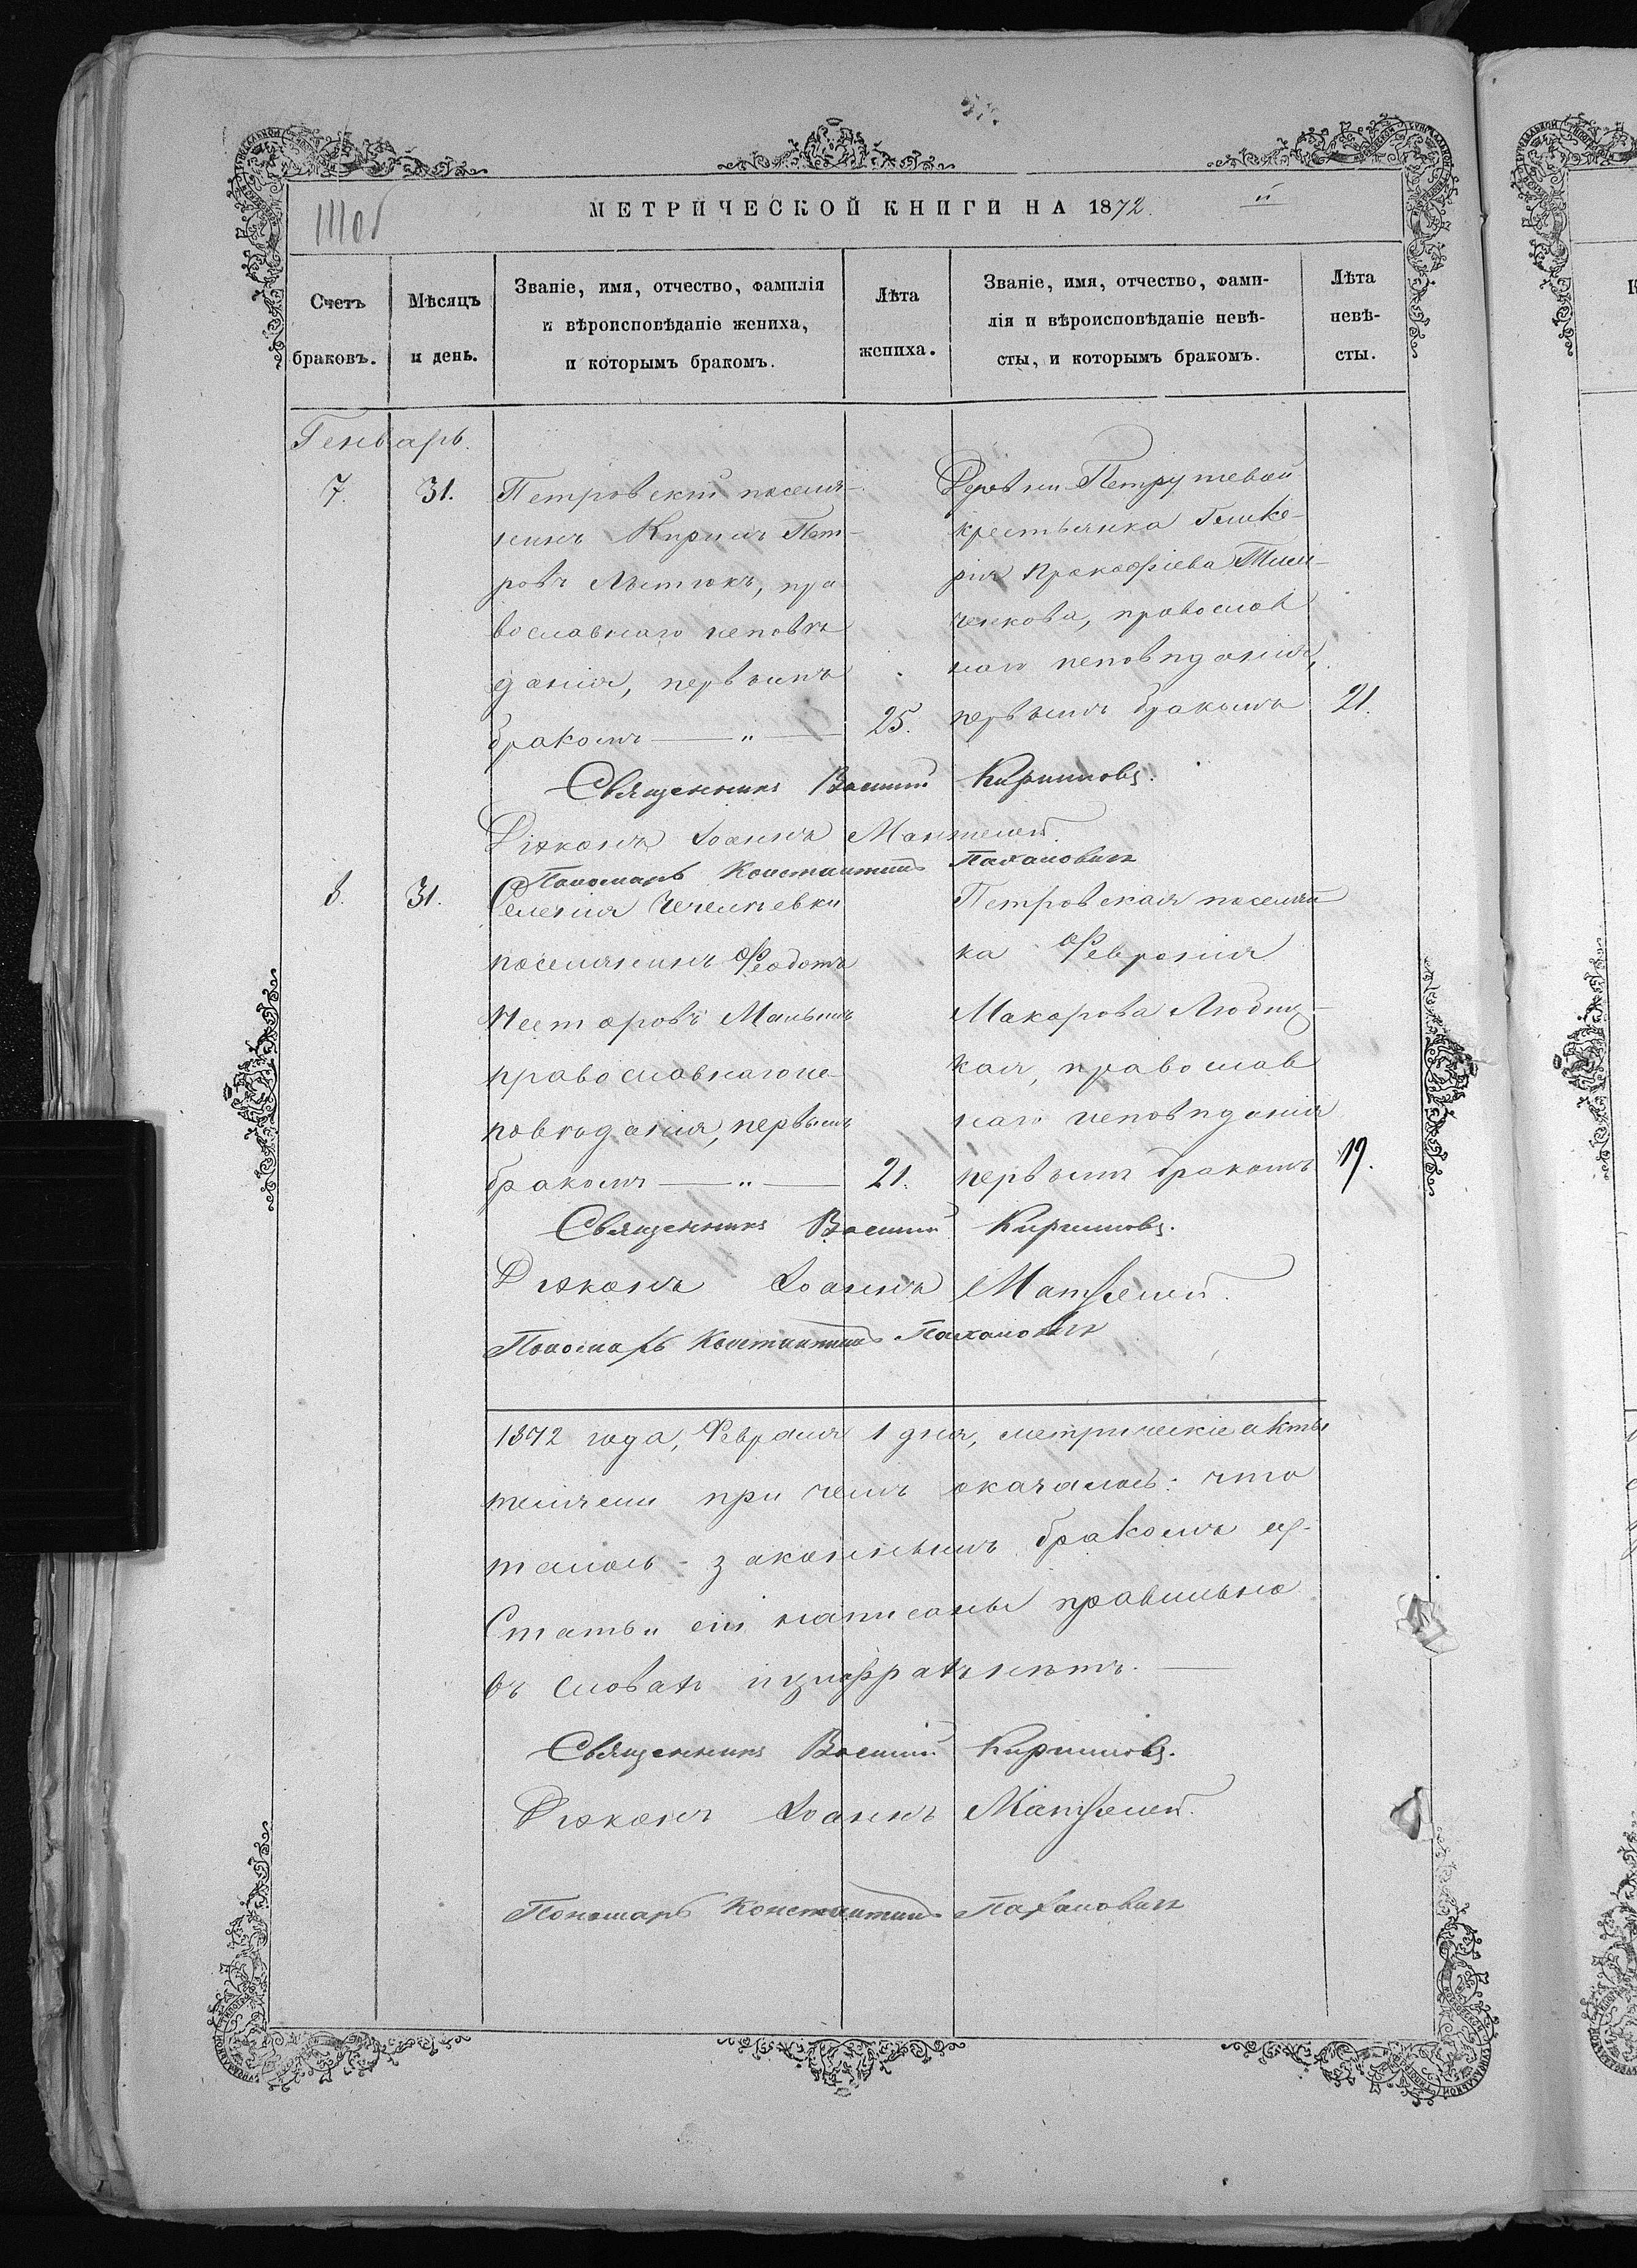 МЕТРИЧЕСКОЙ КНИГИ НА 1872.
Счетъ браковъ.
Мѣсяцъ и день.
Званіе, имя, отчество, фамилія
и вѣроисповѣданіе жениха,
и которымъ бракомъ.
Лѣта жениха.
Званіе, имя, отчество, фами-
лія и вѣроисповѣданіе невѣ-
сты, и которымъ бракомъ.
Лѣта невѣ-
сты.
Генварь.
7. 31.
Петровскій поселя-
нинъ Кирилъ Пет-
ровъ Лытюкъ, пра
вославнаго исповѣ
данія, первымъ
бракомъ — „ — 25.
Деревни Петрушевой
крестьянка Глике-
рія Прокофіева
ченкова, православ
наго исповѣданія,
первымъ бракомъ 21.
Священникъ Василій Кирилловъ.
Діяконъ Іоаннъ
Пономарь Константинъ Пахаловичъ
8. 31.
Селенія Чечелѣевки
поселянинъ Феодотъ
Несторовъ
православнаго ис-
повѣданія, первымъ
бракомъ — „ — 21.
Петровская поселян
ка Февронія
Макарова Любиц-
кая, православ
наго исповѣданія
первымъ бракомъ 19.
Священникъ Василій Кирилловъ.
Діяконъ Іоаннъ
Пономарь Константинъ Пахаловичъ
1872 года, Февраля 1 дня, метрическіе акты
при чемъ оказалось: что
законнымъ бракомъ
Статьи сіи написаны правильно
въ словахъ и цифрахъ нѣтъ. —
Священникъ Василій Кирилловъ.
Діяконъ Іоаннъ
Пономарь Константинъ Пахаловичъ